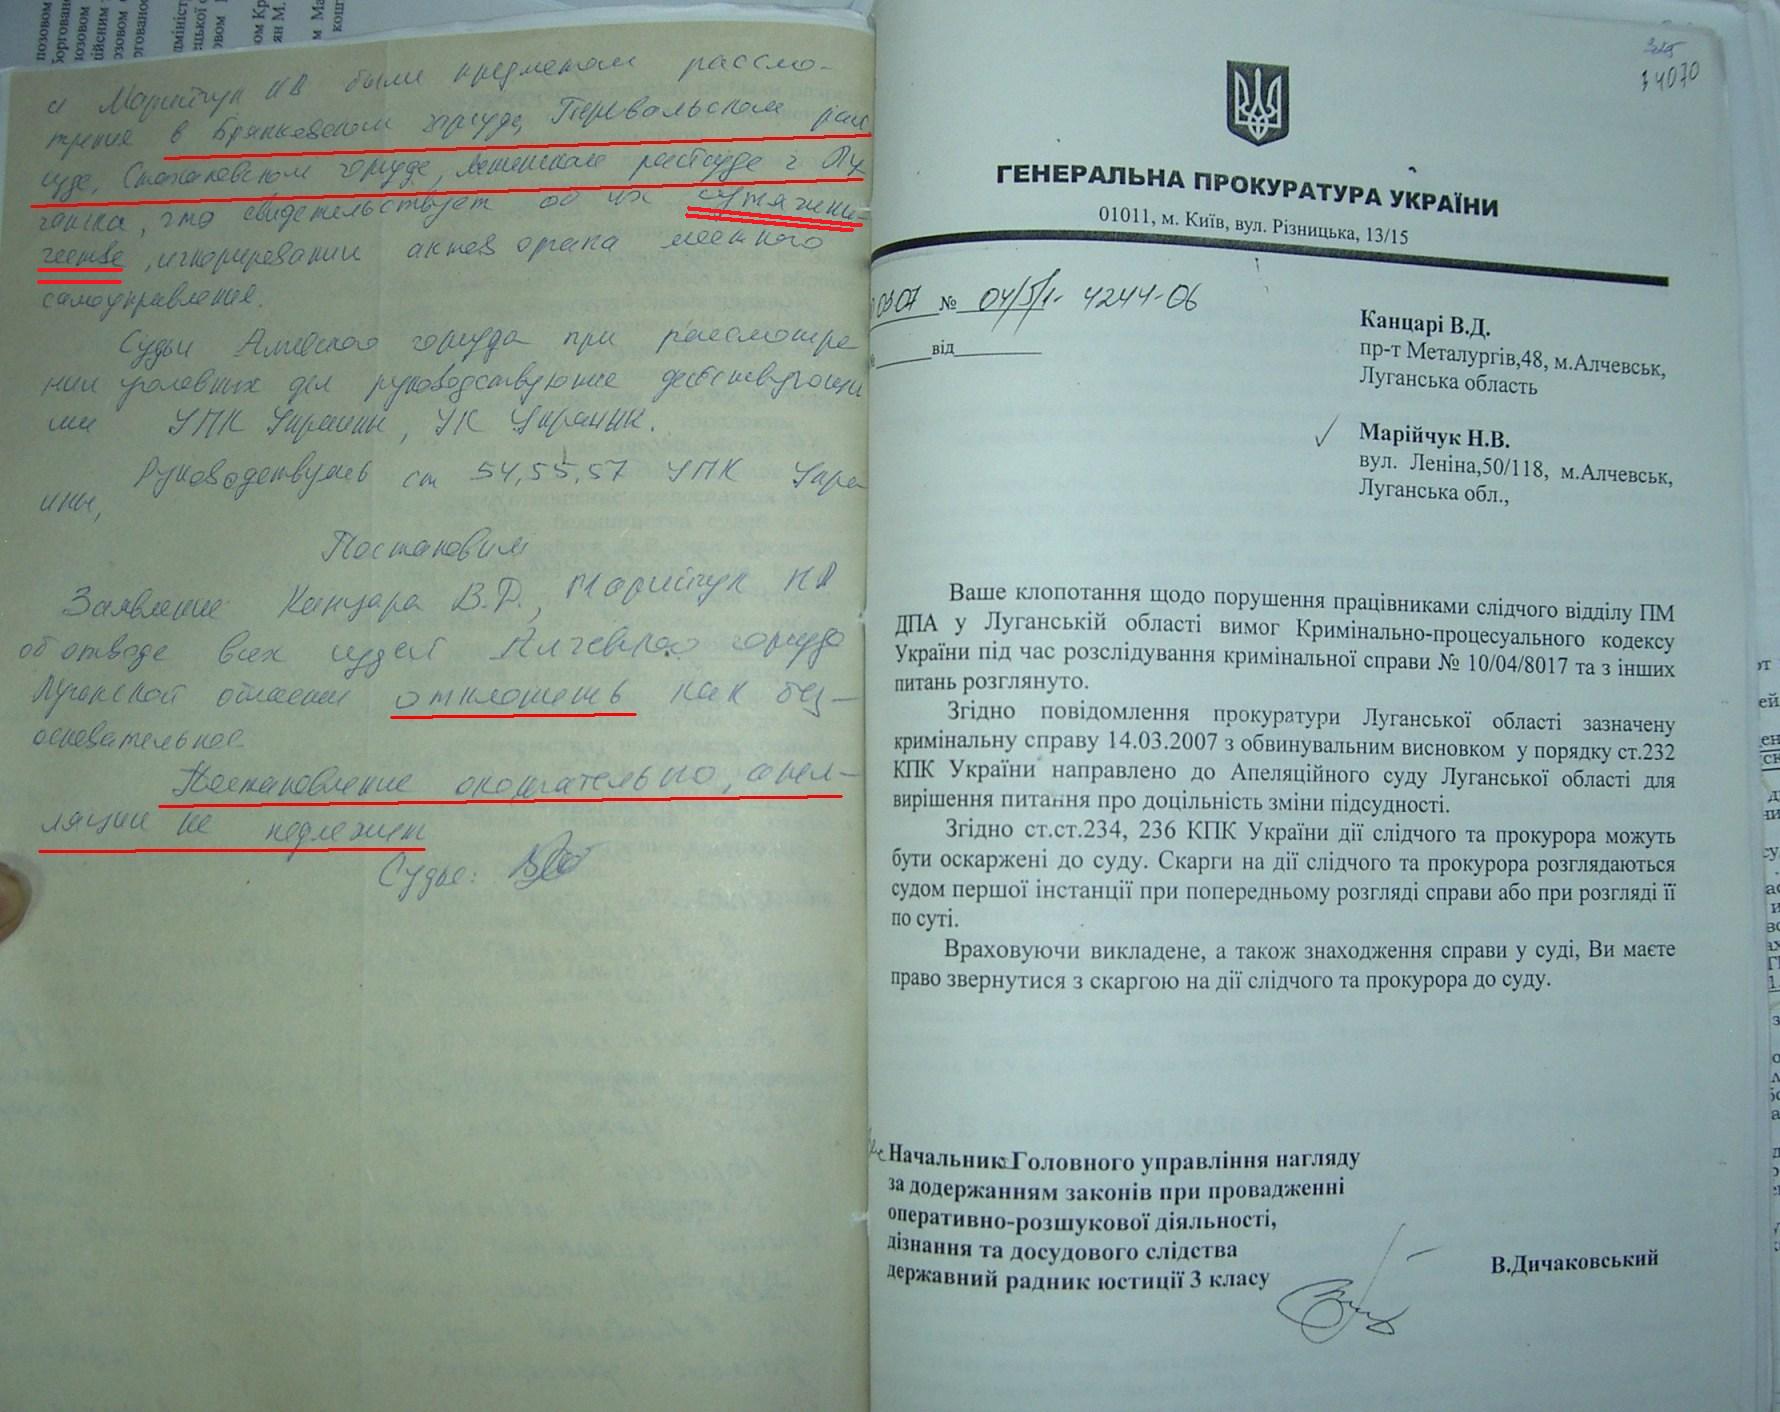 и Марийчук НВ были предметом рассмо-
трения в Брянковском горсуде, Перевальском рай
суде, Стахановском горсуде, Ленинском райсуде г Лу
ганска, что свидетельствует об их сутяжни-
честве, игнорировании актов органа местного
самоуправления.
Судьи Алчевского горсуда при рассмотре
нии уголовных дел руководствуются действующи
ми УПК Украины, УК Украины.
Руководствуясь ст 54,55,57 УПК Укра
ины,
Постановил
Заявление Канцара В.Д., Марийчук НВ
об отводе всех судей Алчевского горсуда
Луганской области отклонить как без-
основательное
Постановление окончательно, апел-
ляции не подлежит
Судья:
34070
ГЕНЕРАЛЬНА ПРОКУРАТУРА УКРАЇНИ
01011, м. Київ, вул. Різницька, 13/15
0307 № 04/5/1- 4244-06
від
Канцарі В.Д.
пр-т Металургів,48, м.Алчевськ,
Луганська область
Марійчук Н.В.
вул. Леніна,50/118, м.Алчевськ,
Луганська обл.,
Ваше клопотання щодо порушення працівниками слідчого відділу ПМ
ДПА у Луганській області вимог Кримінально-процесуального кодексу
України під час розслідування кримінальної справи № 10/04/8017 та з інших
питань розглянуто.
Згідно повідомлення прокуратури Луганської області зазначену
кримінальну справу 14.03.2007 з обвинувальним висновком у порядку ст.232
КПК України направлено до Апеляційного суду Луганської області для
вирішення питання про доцільність зміни підсудності.
Згідно ст.ст.234, 236 КПК України дії слідчого та прокурора можуть
бути оскаржені до суду. Скарги на дії слідчого та прокурора розглядаються
судом першої інстанції при попередньому розгляді справи або при розгляді її
по суті.
Враховуючи викладене, а також знаходження справи у суді, Ви маєте
право звернутися з скаргою на дії слідчого та прокурора до суду.
Начальник Головного управління нагляду
за додержанням законів при провадженні
оперативно-розшукової діяльності,
дізнання та досудового слідства
державний радник юстиції 3 класу
В.Дичаковський